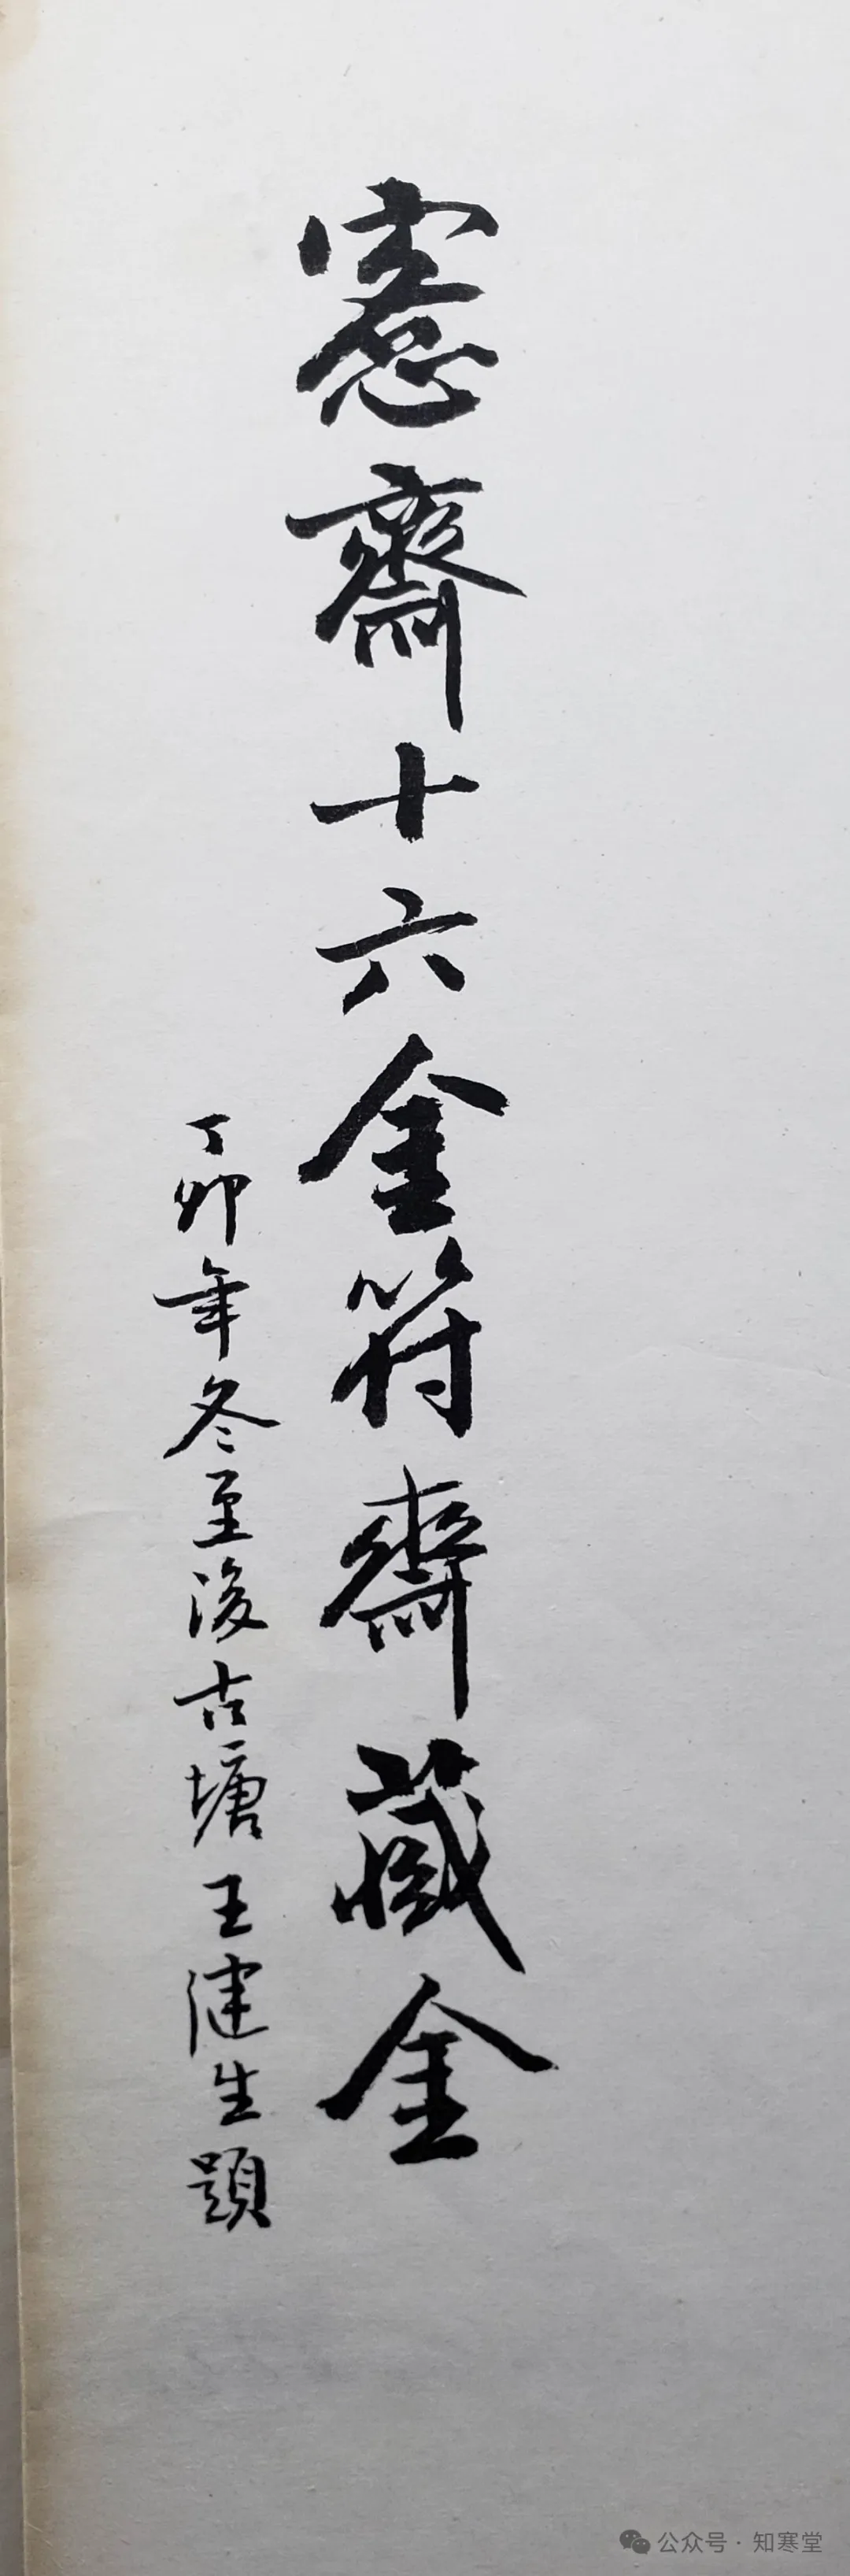 愙齋十六金符齋藏金
丁卯年冬至後古塘王健生題
公众号 · 知寒堂